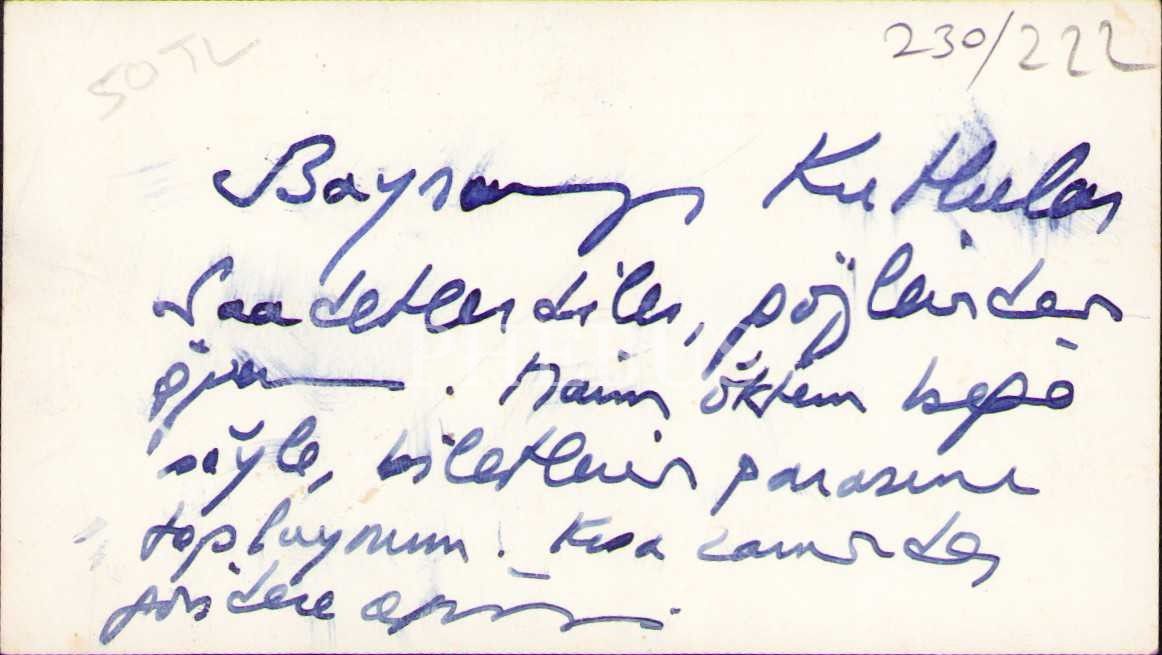 50 TL
230/222
Bayramını Kutlular
Saadetler diler, gözlerinden
öperim. Naim öktem beye
söyle, biletlerin parasını
toplıyorum. Kısa zamanda
göndereceğim.